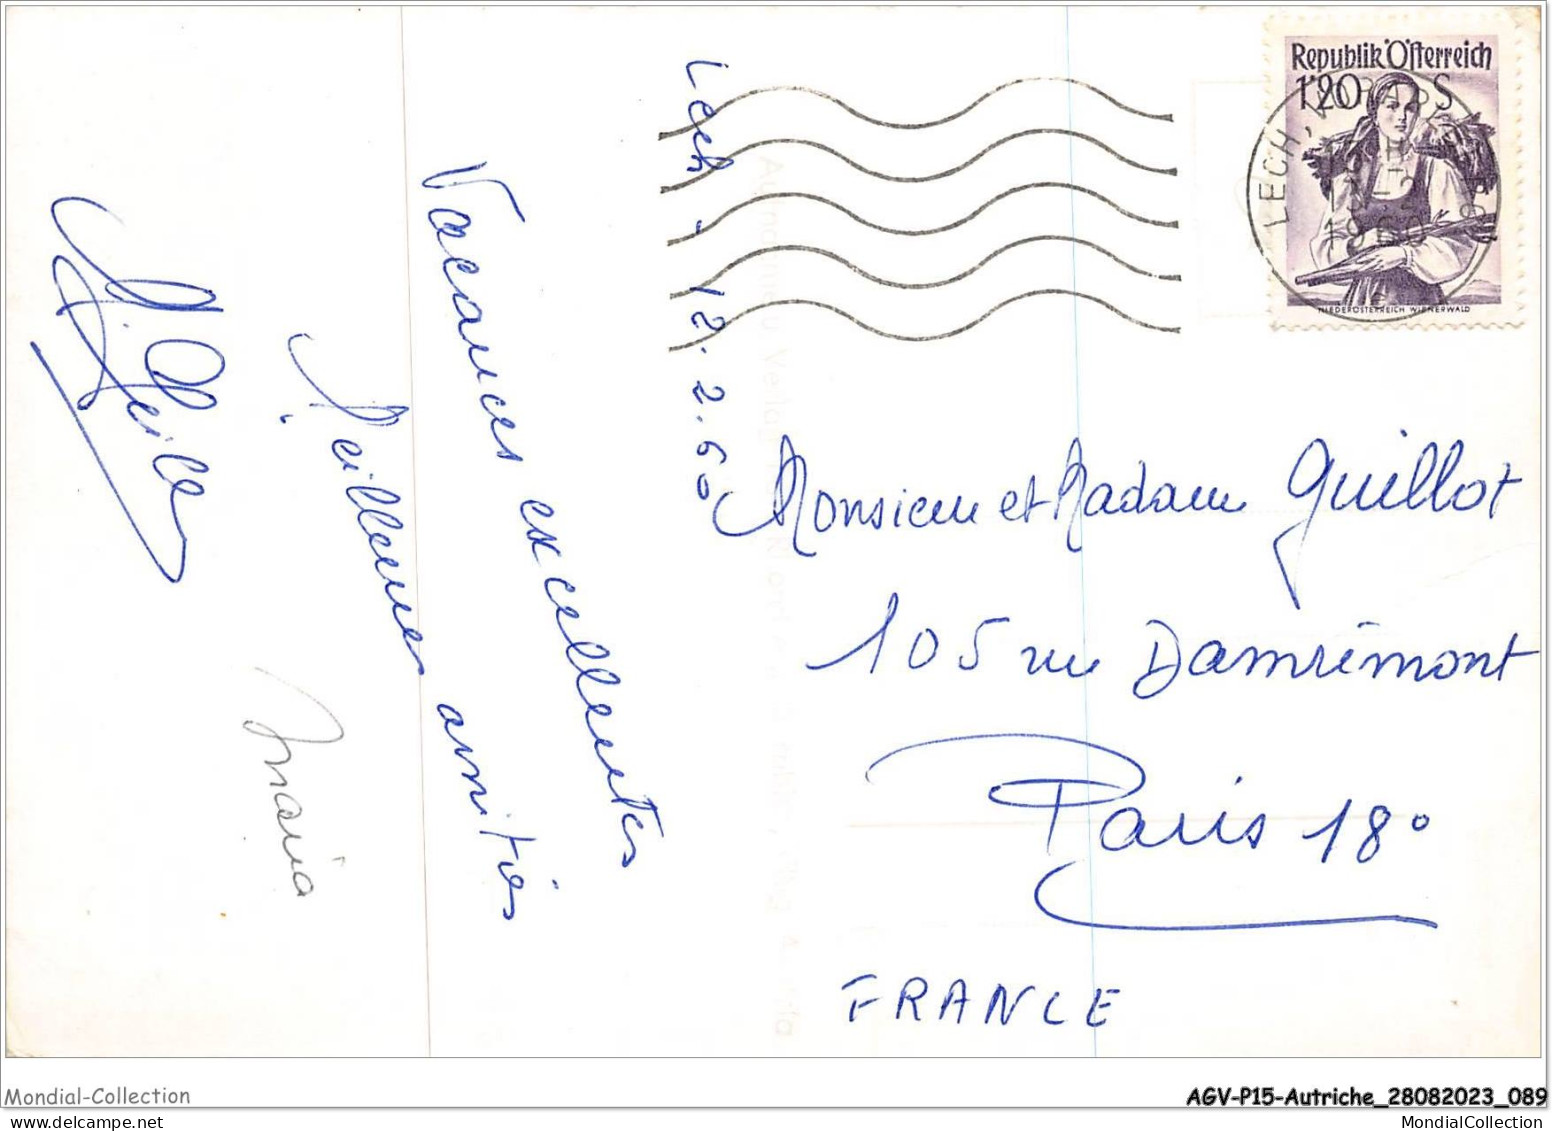 Republik Österreich
1'20 S
NIEDERÖSTERREICH WIENERWALD
LECH, VORARLBERG
1960
Lech - 12.2.60
Vacances excellentes
Meilleures amitiés
Maria
Monsieur et Madame Guillot
105 rue Damrémont
Paris 18°
FRANCE
Mondial-Collection
AGV-P15-Autriche_28082023_089
MondialCollection